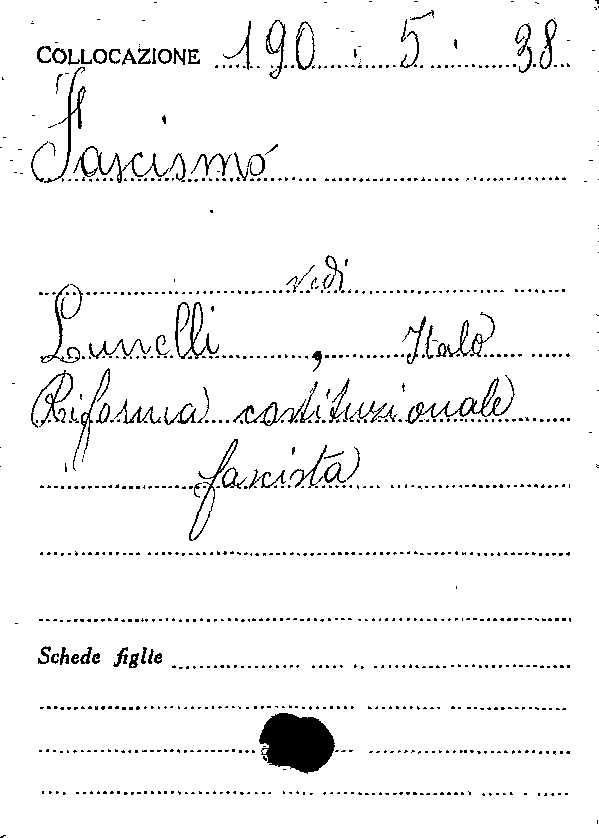 COLLOCAZIONE 190.5.38
Fascismo
vedi
Lunelli, Italo
Riforma costituzionale
fascista
Schede figlie